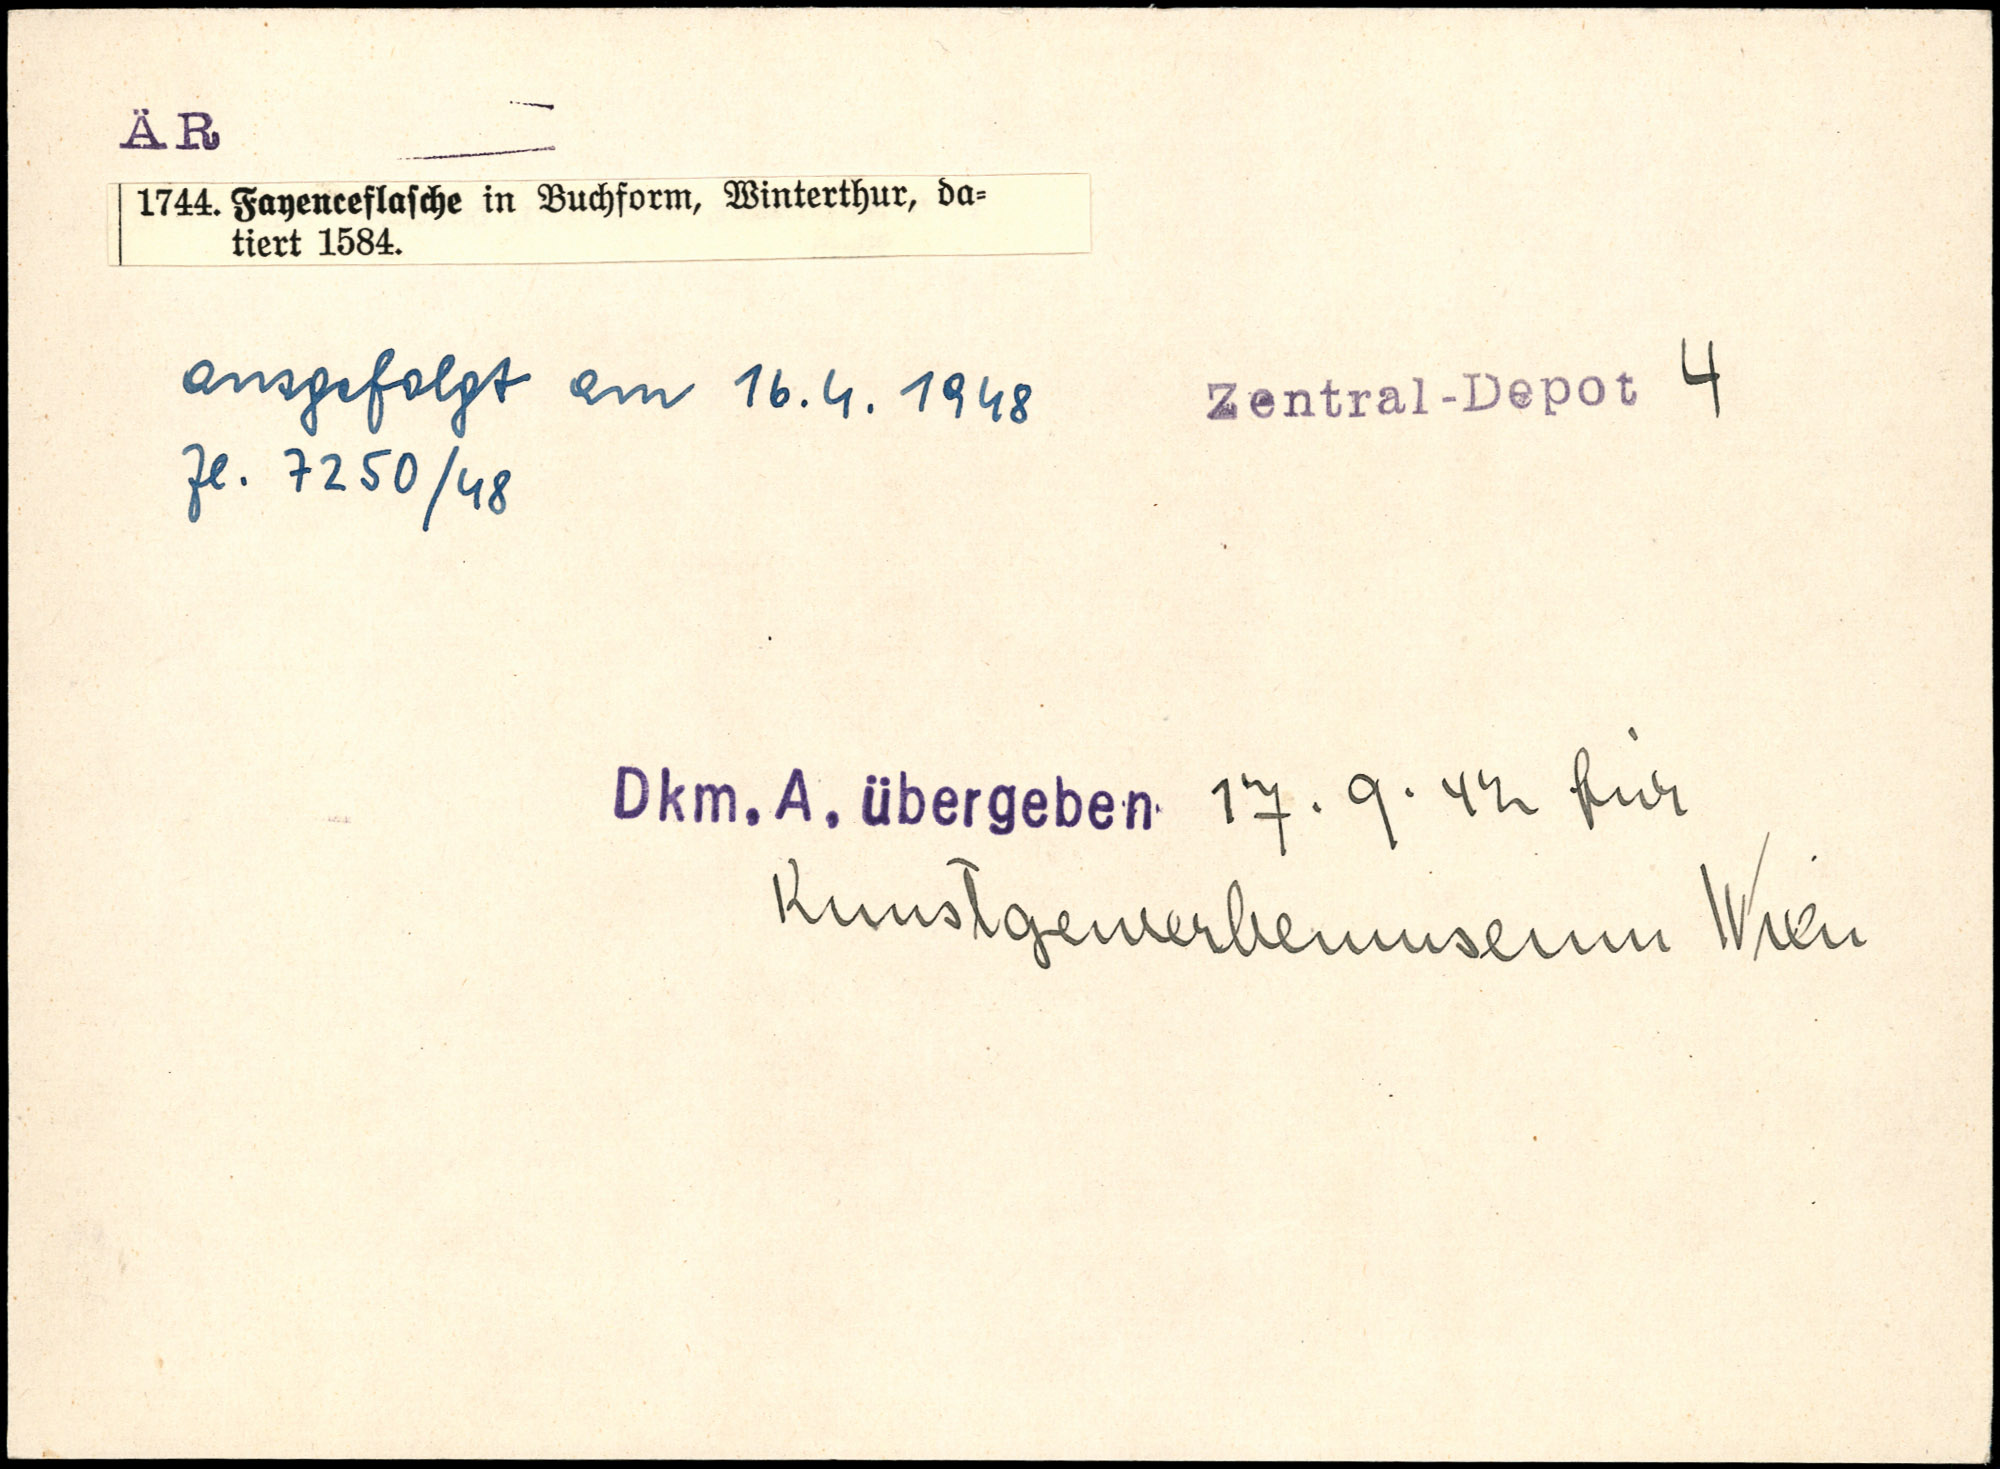 ÄR
1744. Fayenceflasche in Buchform, Winterthur, da-
tiert 1584.
ausgefolgt am 16.4.1948
Zentral-Depot 4
Zl. 7250/48
Dkm. A. übergeben 17.9.42 für
Kunstgewerbemuseum Wien